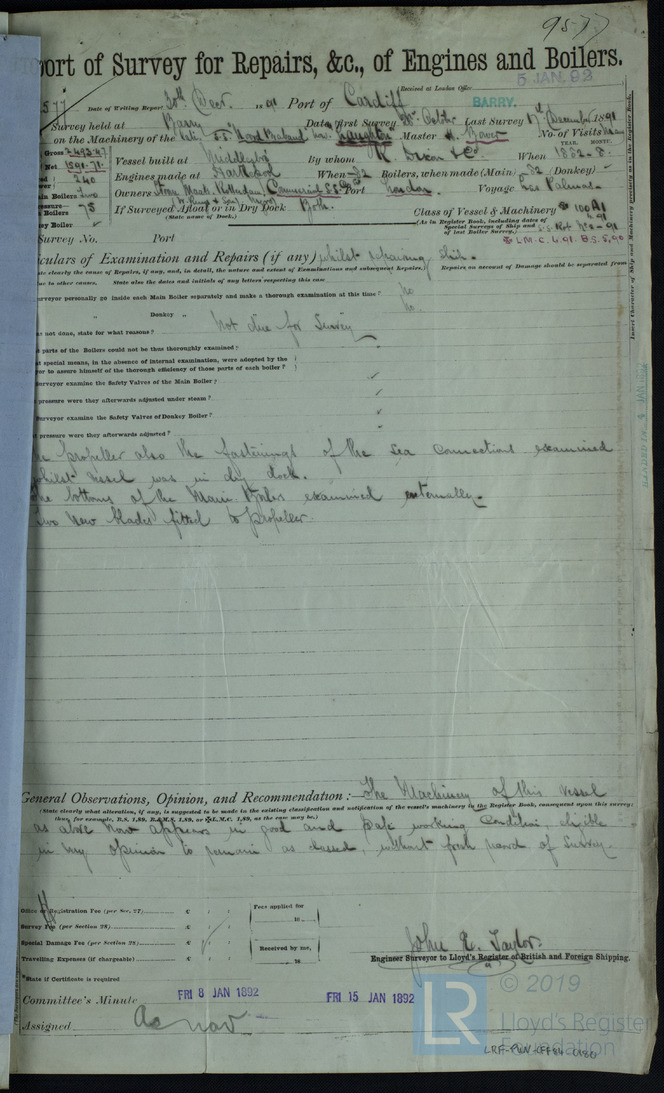 9577
port of Survey for Repairs, &c., of Engines and Boilers.
Received at London Office
5 JAN. 92
577 Date of Writing Report 30th Decr. 1891 Port of Cardiff
BARRY.
Survey held at Barry Date, first Survey Octr Last Survey December 1891
on the Machinery of the S.S. Master No. of Visits
Gross 2493.47 YEAR. MONTH.
Net 1591.71 Vessel built at Middlesbro By whom R. Dixon & Co When 1882-8
240 Engines made at When 82 Boilers, when made (Main) 82 (Donkey)
Main Boilers two Owners Commercial S.S. Co Port London Voyage Las Palmas
75 If Surveyed Afloat or in Dry Dock Both
Boilers (State name of Dock.)
Class of Vessel & Machinery 100A1
(As in Register Book, including dates of Special Surveys of Ship and of last Boiler Survey.)
L.M.C. 4.91. B.S. 5.90
Survey No. Port
culars of Examination and Repairs (if any) whilst repairing ship.
te clearly the cause of Repairs, if any, and, in detail, the nature and extent of Examinations and subsequent Repairs. Repairs on account of Damage should be separated from
ue to other causes. State also the dates and initials of any letters respecting this case
urveyor personally go inside each Main Boiler separately and make a thorough examination at this time? No
" Donkey " No.
s not done, state for what reasons? Not due for Survey
t parts of the Boilers could not be thus thoroughly examined?
at special means, in the absence of internal examination, were adopted by the
yor to assure himself of the thorough efficiency of those parts of each boiler?
urveyor examine the Safety Valves of the Main Boiler?
t pressure were they afterwards adjusted under steam?
urveyor examine the Safety Valves of Donkey Boiler?
t pressure were they afterwards adjusted?
he propeller also the fastenings of the sea connections examined
whilst vessel was in dry dock.
The bottoms of the Main Boilers examined externally.
Two new blades fitted to propeller.
General Observations, Opinion, and Recommendation:— The Machinery of this vessel
(State clearly what alteration, if any, is suggested to be made to the existing classification and notification of the vessel's machinery in the Register Book, consequent upon this survey;
thus, for example, B.S. 1,89, B.&M.S. 1,89, or L.M.C. 1,89, as the case may be.)
as above now appears in good and safe working condition, eligible
in my opinion to remain as classed, without fresh record of Survey.
Office or Registration Fee (per Sec. 27) £ Fees applied for
Survey Fee (per Section 28) £ 18
Special Damage Fee (per Section 28) £ Received by me,
Travelling Expenses (if chargeable) £ 18
John E. Taylor.
Engineer Surveyor to Lloyd's Register of British and Foreign Shipping.
*State if Certificate is required
Committee's Minute FRI 8 JAN 1892 FRI 15 JAN 1892
Assigned As now
LR © 2019
Lloyd's Register
Foundation